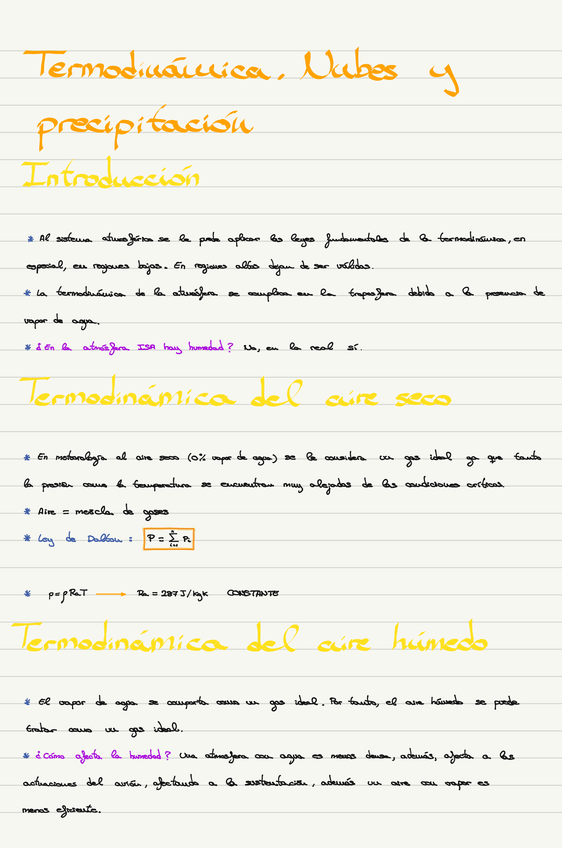 Termodinámica. Nubes y
precipitación
Introducción
* Al sistema atmosférico se la puede aplicar las leyes fundamentales de la termodinámica, en
especial, en regiones bajas. En regiones altas dejan de ser válidas.
* La termodinámica de la atmósfera se complica en la troposfera debido a la presencia de
vapor de agua.
* ¿En la atmósfera ISA hay humedad? No, en la real sí.
Termodinámica del aire seco
* En meteorología al aire seco (0% vapor de agua) se le considera un gas ideal ya que tanto
la presión como la temperatura se encuentran muy alejadas de las condiciones críticas
* Aire = mezcla de gases
* Ley de Dalton : P = Σ Pi
* p = ρ Ra T → Ra = 287 J/kgK CONSTANTE
Termodinámica del aire húmedo
* El vapor de agua se comporta como un gas ideal. Por tanto, el aire húmedo se puede
tratar como un gas ideal.
* ¿Cómo afecta la humedad? Una atmosfera con agua es menos densa, además, afecta a las
actuaciones del avión, afectando a la sustentación, además un aire con vapor es
menos eficiente.